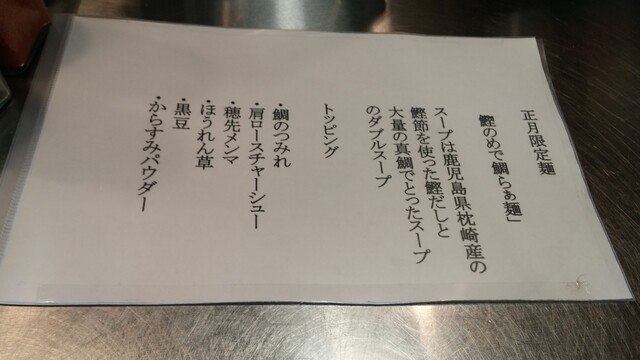 正月限定麺
鰹のめで鯛らぁ麺」
スープは鹿児島県枕崎産の
鰹節を使った鰹だしと
大量の真鯛でとったスープ
のダブルスープ
トッピング
・鯛のつみれ
・肩ロースチャーシュー
・穂先メンマ
・ほうれん草
・黒豆
・からすみパウダー